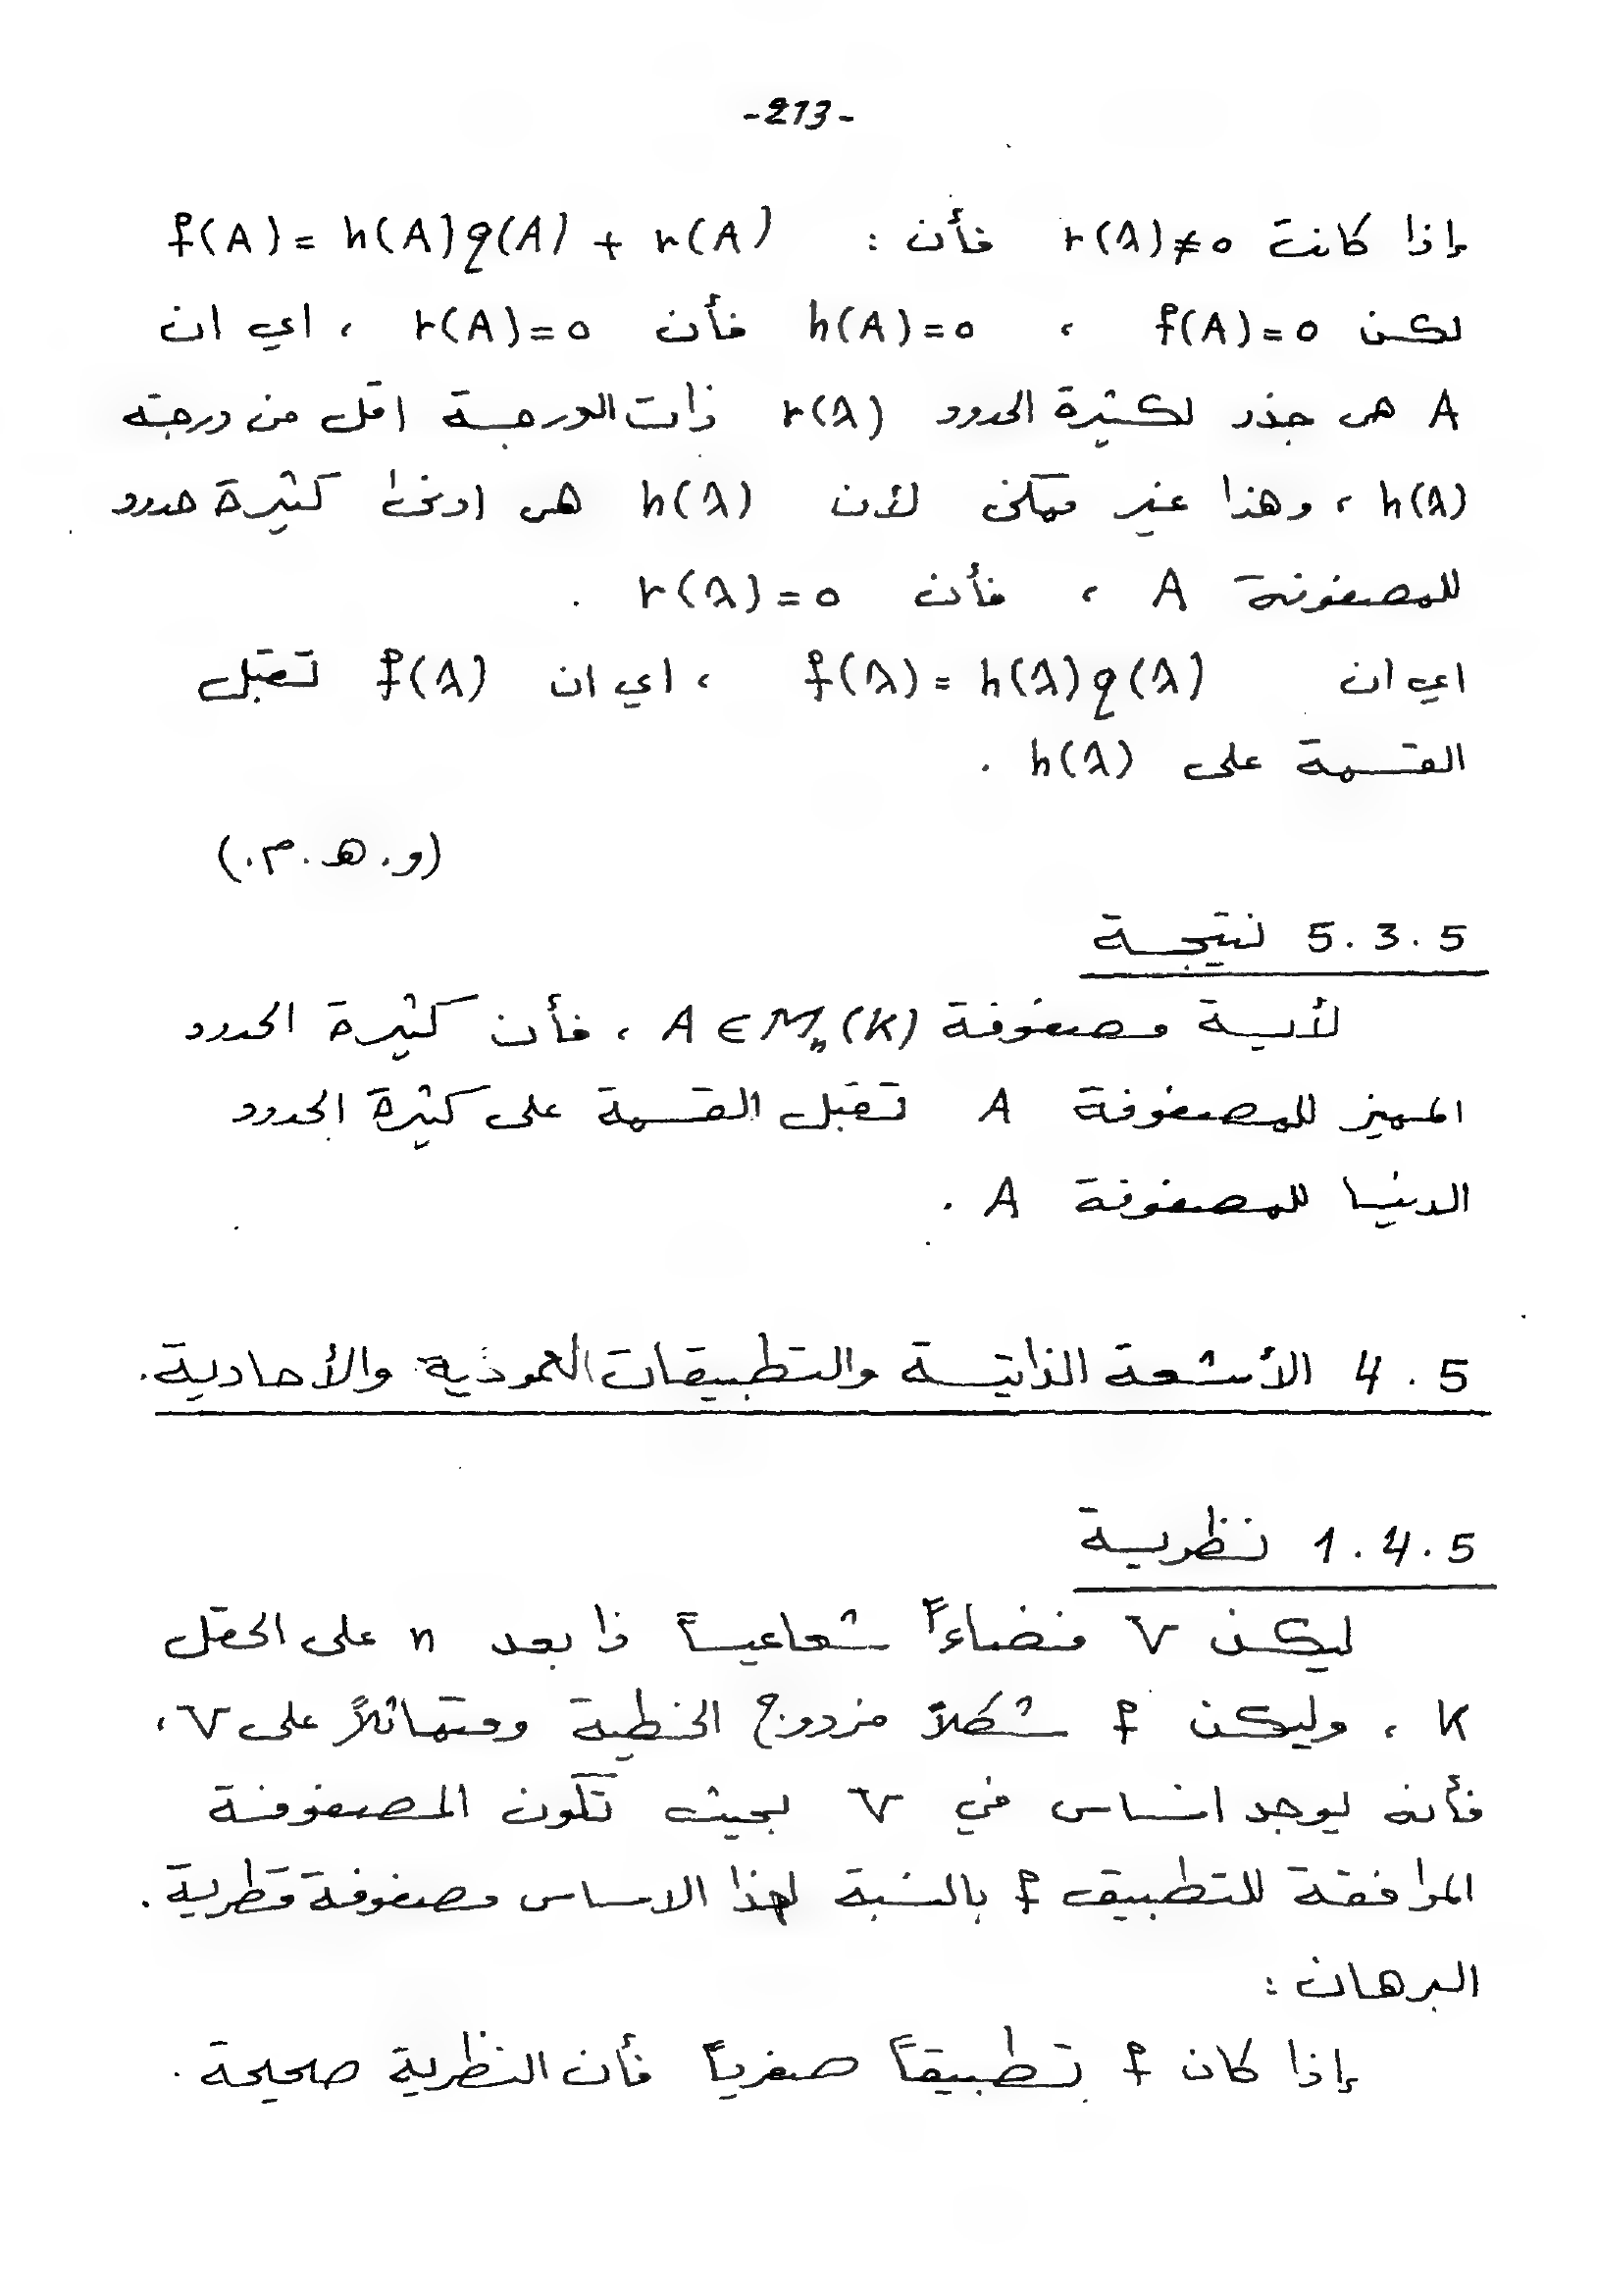 -213-
إذا كانت r(λ)≠0 فأن : f(A)= h(A)q(A) + r(A)
لكن f(A)=0 ، h(A)=0 فأن r(A)=0 ، اي ان
A هي جذر لكثيرة الحدود r(λ) ذات الدرجة اقل من درجة
h(λ) ، وهذا غير ممكن لأن h(λ) هي ادنى كثيرة حدود
للمصفوفة A ، فأن r(λ)=0 .
اي ان f(λ)= h(λ)q(λ) ، اي ان f(λ) تقبل
القسمة على h(λ) .
(و. هـ. م.)
5.3.5 نتيجة
لأية مصفوفة A∈Mₙ(K) ، فأن كثيرة الحدود
المميز للمصفوفة A تقبل القسمة على كثيرة الحدود
الدنيا للمصفوفة A .
4.5 الأشعة الذاتية والتطبيقات العموذية والأحادية.
1.4.5 نظرية
ليكن V فضاءً شعاعياً ذا بعد n على الحقل
K ، وليكن f شكلاً مزدوج الخطية ومتماثلاً على V ،
فأنه يوجد اساس في V بحيث تكون المصفوفة
الموافقة للتطبيق f بالنسبة لهذا الاساس مصفوفة قطرية .
البرهان :
إذا كان f تطبيقاً صفرياً فأن النظرية صحيحة .